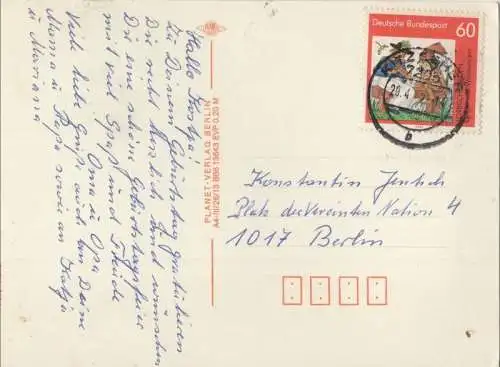 Hallo Kostja!
Zu Deinem Geburtstag gratulieren
Dir recht herzlich und wünschen
Dir eine schöne Geburtstagsfeier
mit viel Spaß und Freude
Oma u Opa
Viele liebe Grüße auch an Deine
Mama u Papa sowie an Katja
u Mariana
PLANET-VERLAG BERLIN
A4-III/26/13 B66 13643 EVP 0,20 M
Deutsche Bundespost
60
Konstantin Jentsch
Platz der Vereinten Nation 4
1017 Berlin